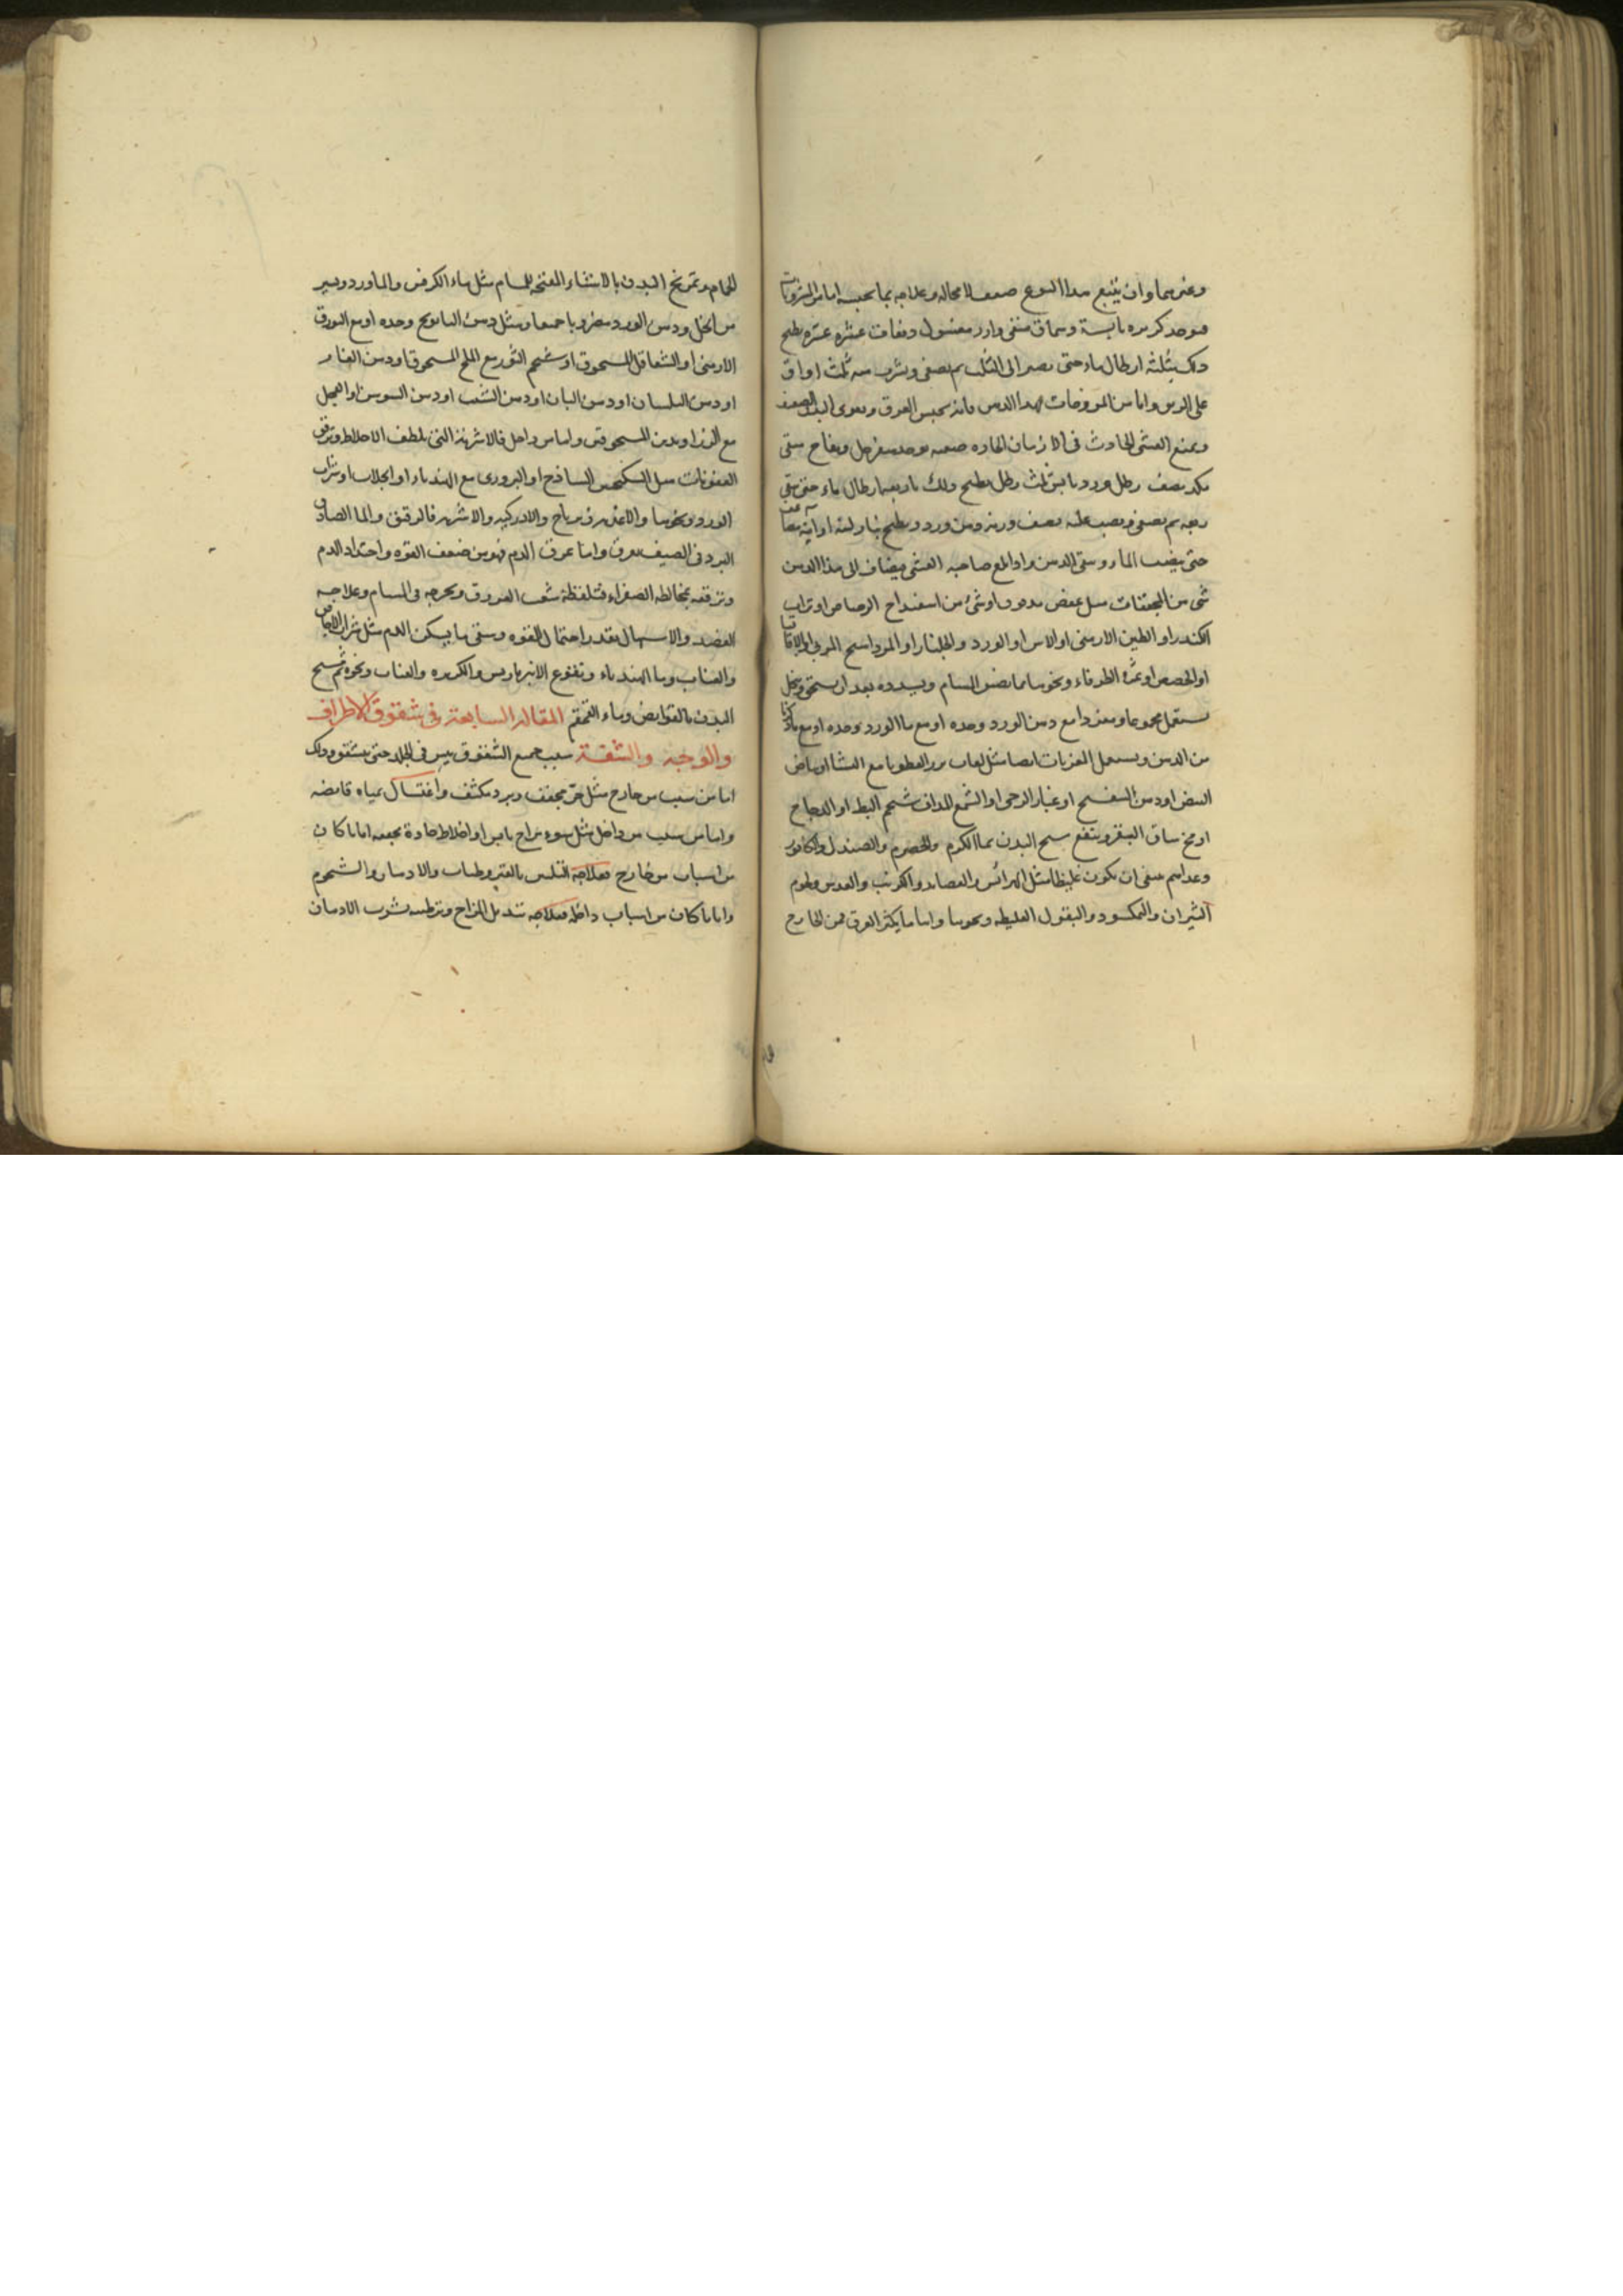 وغيرهما وان يتبع هذا النوع ضعف لا محالة وعلاجه بما يحبسه اما من المشروبات
فيوخذ كزبره يابسة وسماق منقى وارز مغسول ونعاف عشره عشره يطبخ
ذلك بثلثة ارطال ماء حتى يصير الى الثلث ثم يصفى ويشرب منه ثلث اواق
على الريق واما من المروخات فهذا الدهن فانه يحبس العرق ويقوى البدن الضعيف
ويمنع الغشى الحادث فى الازمان الحاره صفته يوخذ سفرجل وتفاح ستى
مكد نصف رطل ورد يابس ثلث رطل يطبخ ذلك باربعة ارطال ماء حتى يبقى
ربعه ثم يصفى ويصب عليه نصف وزنه دهن ورد ويطبخ بنار لينة او انية مضاعفة
حتى يذهب الماء ويبقى الدهن واذا بلغ صاحبه الغشى فيضاف الى هذا الدهن
شى من المجففات مثل عفص مدقوق او شئ من اسفيداج الرصاص او تراب
الكندر او الطين الارمنى او الاس او الورد والجلنار او المرداسنج المربى او الاقاقيا
او الحصص او ثمرة الطرفاء ونحوها مما يضيق المسام ويسدده بعد ان يسحق وينخل
يستعمل مجموعا ومفردا مع دهن الورد وحده او مع ماء الورد وحده او مع ما ذكرنا
من الدهن ويستعمل المغريات ايضا مثل لعاب بزر القطونا مع النشا او بياض
البيض او دهن البنفسج او غبار الرحى او الشمع المداف بشحم البط او الدجاج
او مخ ساق البقر وينفع مسح البدن بماء الكرم والحصرم والصندل والكافور
وغذاهم ينبغى ان يكون غليظا مثل الهرائس والعصايد والكرنب والعدس ولحوم
الثيران والنمكسود والبقول الغليظة ونحوها واما ما يكثر العرق فمن الخارج
الحمام وتمريخ البدن بالاشياء المفتحة للمسام مثل ماء الكرفس والماورد ويسير
من الخل ودهن الورد مضروبا جميعا ومثل دهن البابونج وحده او مع البورق
الارمنى او الشعاقل المسحوق او شحم الثور مع الملح المسحوق او دهن الغار
او دهن البلسان او دهن البان او دهن الشبث او دهن السوسن او الفجل
مع النزاوندين المسحوقين واما من داخل فالاشربة التى تلطف الاخلاط وترقق
العفونات مثل السكنجبين الساذج او البزورى مع الهندباء او الجلاب او شراب
الورد ونحوها والاغذية زيرباج والادركية والاشربة فالرقيق والماء الصادق
البرد فى الصيف يعرق واما عرق الدم فهو من ضعف القوة واحتداد الدم
وترققه بمخالطة الصفراء فتلفظه شعب العروق ويخرجه فى المسام وعلاجه
الفصد والاسهال بقدر احتمال القوه وسقى ما يسكن الدم مثل شراب الاجاص
والعناب وماء الهندباء ونقوع الانبرباريس والكزبره والعناب ونحوه ثم يمسح
البدن بالقوابض وماء القمقم المقالة السابعة فى شقوق الاطراف
والوجه والشفة سبب جميع الشقوق يبس فى الجلد حتى يتشقق وذلك
اما من سبب من خارج مثل حر مجفف وبرد مكثف واغتسال بمياه قابضه
واما من سبب من داخل مثل سوء مزاج يابس او اخلاط حادة مجففه اما ما كان
من اسباب من خارج فعلاجه التليين بالقيروطيات والادهان والشحوم
واما ما كان من اسباب داخله فعلاجه تبديل المزاج وترطيبه بشرب الادهان